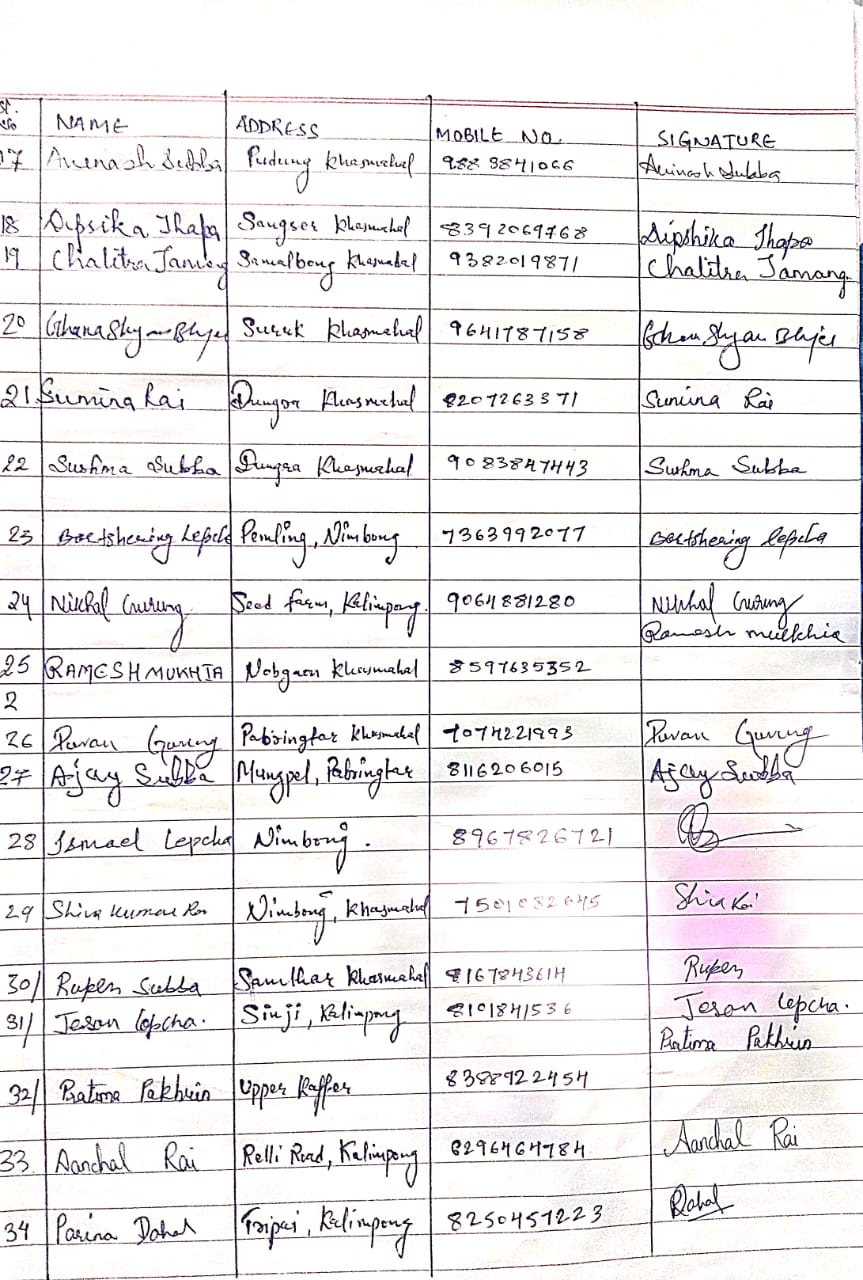 Sl. No NAME ADDRESS MOBILE NO. SIGNATURE
17 Avenash Subba Pudung Khasmahal 988 3841066 Avinash Subba
18 Dipsika Thapa Sangser Khasmahal 8392069768 Dipshika Thapa
19 Chalitra Tamang Samalbong Khasmahal 9382019871 Chalitra Tamang
20 Ghanashyam Bhujel Suruk Khasmahal 9641787158
21 Sumina Rai Dungra Khasmahal 8207263371 Sunina Rai
22 Sushma Subba Dungra Khasmahal 9083847443 Sushma Subba
23 Lepcha Pemling, Nimbong 7363992077 Lepcha
24 Nikhal Gurung Seed farm, Kalimpong. 9064881280 Nikhal Gurung
Ramesh mukhia
25 RAMESH MUKHIA Nobgaon Khasmahal 8597635352
2
26 Pavan Gurung Pabringtar Khasmahal 7074221993 Pavan Gurung
27 Ajay Subba Mungpel, Pabringtar 8116206015 Ajay Subba
28 Ismael Lepcha Nimbong. 8967826721
29 Shiva Kumar Rai Nimbong, Khasmahal 7501082645 Shiva Rai
30/ Rupen Subba Samthar Khasmahal 8167843614 Rupen
31/ Jesan Lepcha. Sinji, Kalimpong 8101841536 Jesan Lepcha.
Pratima Pakhrin
32/ Pratima Pakhrin Upper Kaffer 8388922454
33 Aanchal Rai Relli Road, Kalimpong 8296464784 Aanchal Rai
34 Parina Dahal Tripai, Kalimpong 8250457223 Dahal